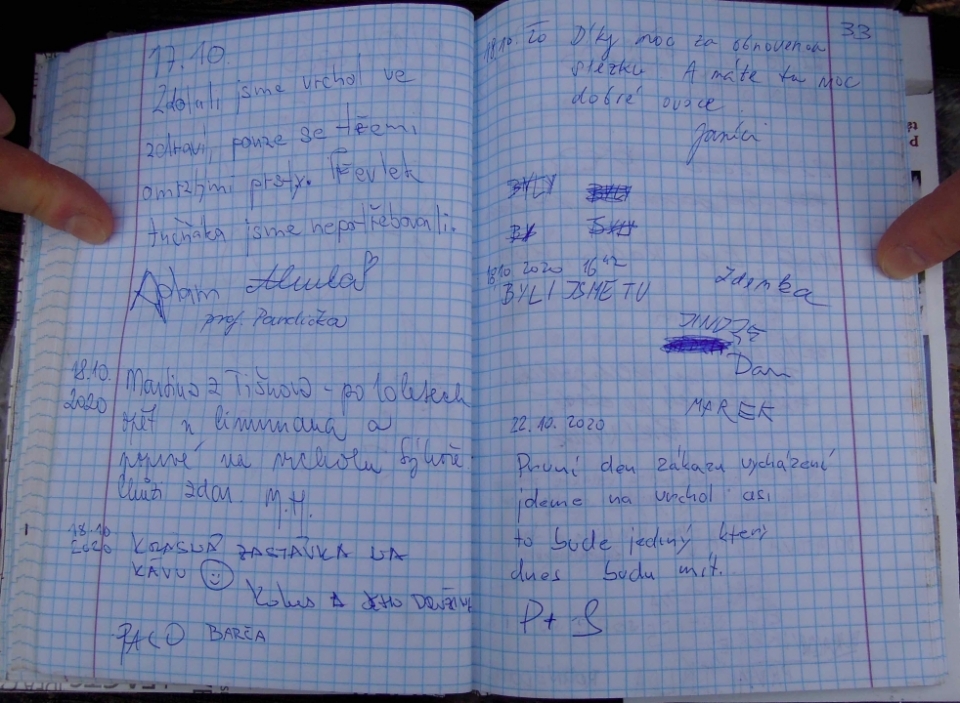 17.10.
Zdolali jsme vrchol ve
zdraví, pouze se třemi
omrzlými prsty. Převlek
tučňáka jsme nepotřebovali.
Adam
prof. Pandička
18.10.
2020
Martina z Tišnova - po 10 letech
opět u limmana a
poprvé na vrcholu
zdar. M.H.
18.10
2020
KRÁSNÁ ZASTÁVKA NA
KÁVU
Kobus A JEHO DRUŽINA
PACO BARČA
33
18.10.20 Díky moc za obnovenou
stezku. A máte tu moc
dobré ovoce.
BYLY
BY
18.10 2020 16 42
BYLI JSME TU
Zdenka
JINDRA
Dan
MAREK
22.10.2020
První den zákazu vycházení
jdeme na vrchol asi
to bude jediný který
dnes budu mít.
P + S